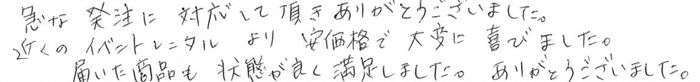 急な 発注に 対応して 頂き ありがとうございました。
近くの イベントレンタル より 安価格で 大変に 喜びました。
届いた商品も 状態が良く 満足しました。 ありがとうございました。